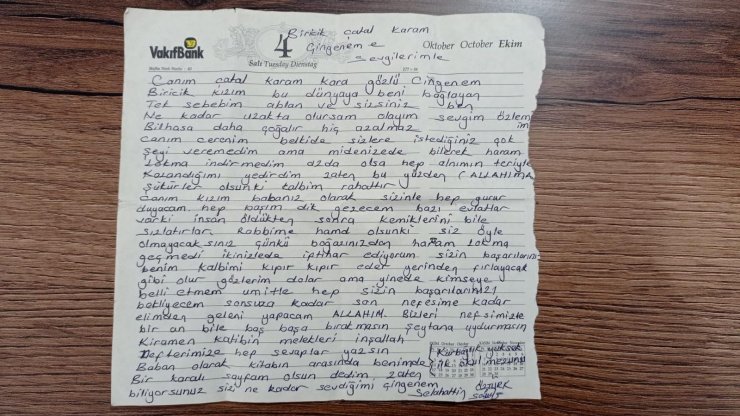 Biricik çatal karam
Çingenem e
sevgilerimle
VakıfBank
4
Salı Tuesday Dienstag
Oktober October Ekim
Canım çatal karam kara gözlü Çingenem
Biricik kızım bu dünyaya beni bağlayan
Tek sebebim ablan ve sizsiniz ben
Ne kadar uzakta olursam olayım sevgim özlemim
Bilhasa daha çoğalır hiç azalmaz
canım cerenim belkide sizlere istediğiniz çok
Şeyi veremedim ama midenizede bilerek haram
Lokma indirmedim azda olsa hep alnımın teriyle
Kazandığımı yedirdim zaten bu yüzden (ALLAHIMA
Şükürler olsunki kalbim rahattır
Canım kızım babanız olarak sizinle hep gurur
duyacam hep başım dik gezecem bazı evlatlar
varki insan öldükten sonra kemiklerini bile
sızlatırlar Rabbime hamd olsunki siz öyle
olmayacaksınız çünkü boğazınızdan haram lokma
geçmedi ikinizlede iptihar ediyorum sizin başarılarınız
benim kalbimi kıpır kıpır eder yerinden fırlayacak
gibi olur gözlerim dolar ama yinede kimseye
belli etmem umitle hep sizin başarılarınızı
bekliyecem sonsuza kadar son nefesime kadar
elimden geleni yapacam ALLAHIM. Bizleri nefsimizle
bir an bile baş başa bıratmasın şeytana uydurmasın
Kiramen katibin melekleri inşallah
Defterimize hep sevaplar yazsın
Baban olarak kitabın arasında benimde
Bir karalı sayfam olsun dedim zaten
biliyorsunuz sizi ne kadar sevdiğimi çingenem
Kurbağlık yüksek
ilk okul mezunu
Selahattin özyek